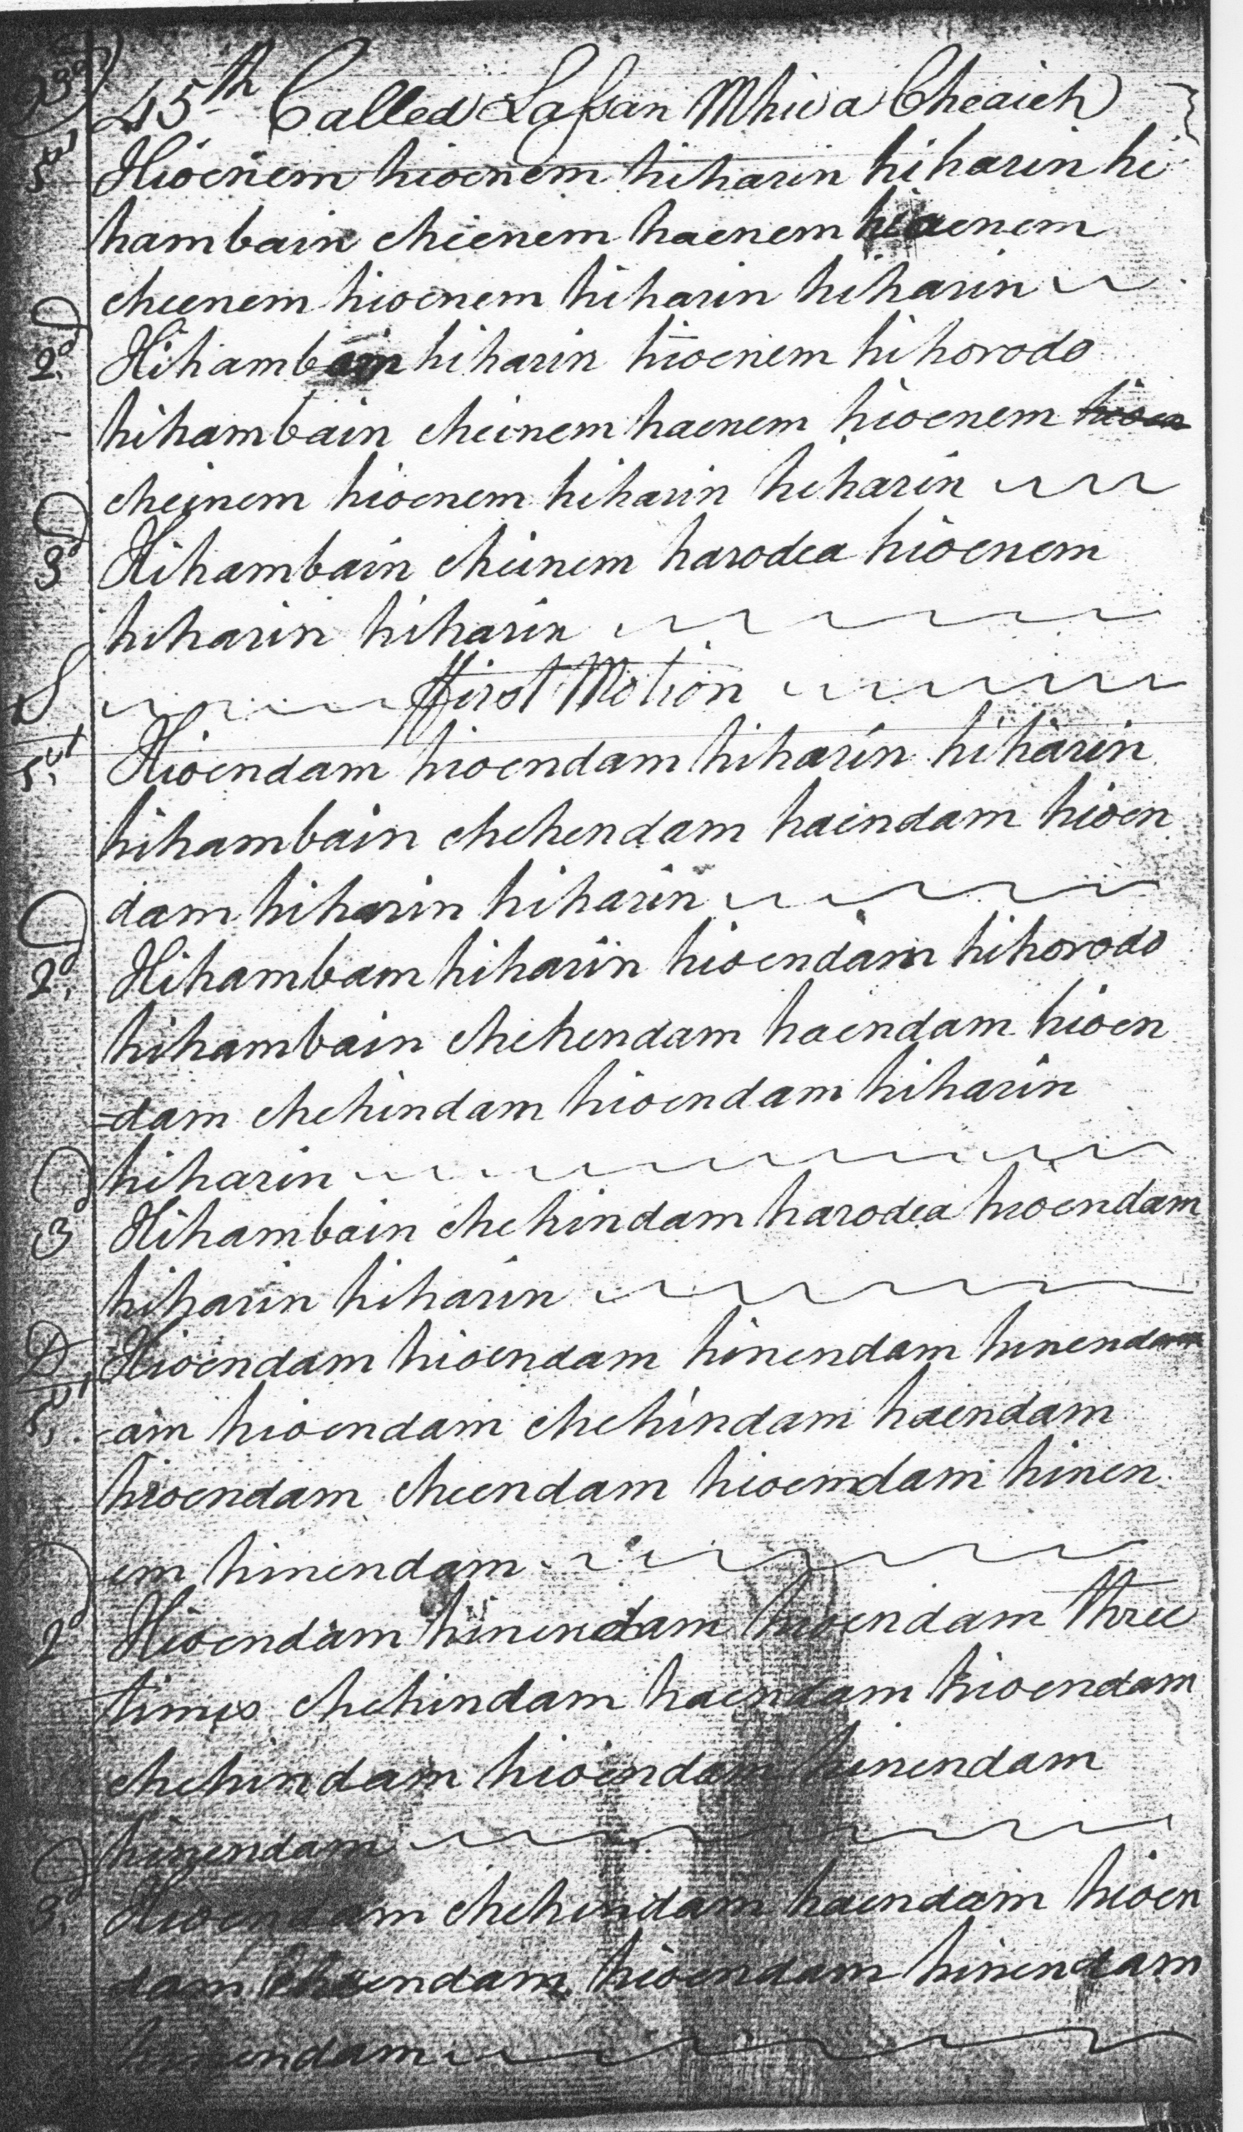 45th Called Lassan Mhic a Cheaich
1st Hioenem hioenem hiharin hiharin hi
hambain cheenem haenem hioenem
cheenem hioenem hiharin hiharin
2d Hihambain hiharin hioenem hihorodo
hihambain cheinem haenem hioenem
cheinem hioenem hiharin hiharin
3d Hihambain cheinem harodea hioenem
hiharin hiharin
First Motion
1st Hioendam hioendam hiharin hiharin
hihambain chehendam haendam hioen
dam hiharin hiharin
2d Hihambam hiharin hioendam hihorodo
hihambain chehendam haendam hioen
=dam chehindam hioendam hiharin
hiharin
3d Hihambain chehindam harodea hioendam
hiharin hiharin
D
1st Hioendam hioendam hinendam hinendam
hioendam chehindam haendam
hioendam cheendam hioemdam hinen
em hinendam
2d Hioendam hinendam hioendam three
times chehindam haendam hioendam
chehindam hioendam hinendam
hinendam
3d Hioendam chehindam haendam hioen
dam cheendam hioendam hinendam
hinendam